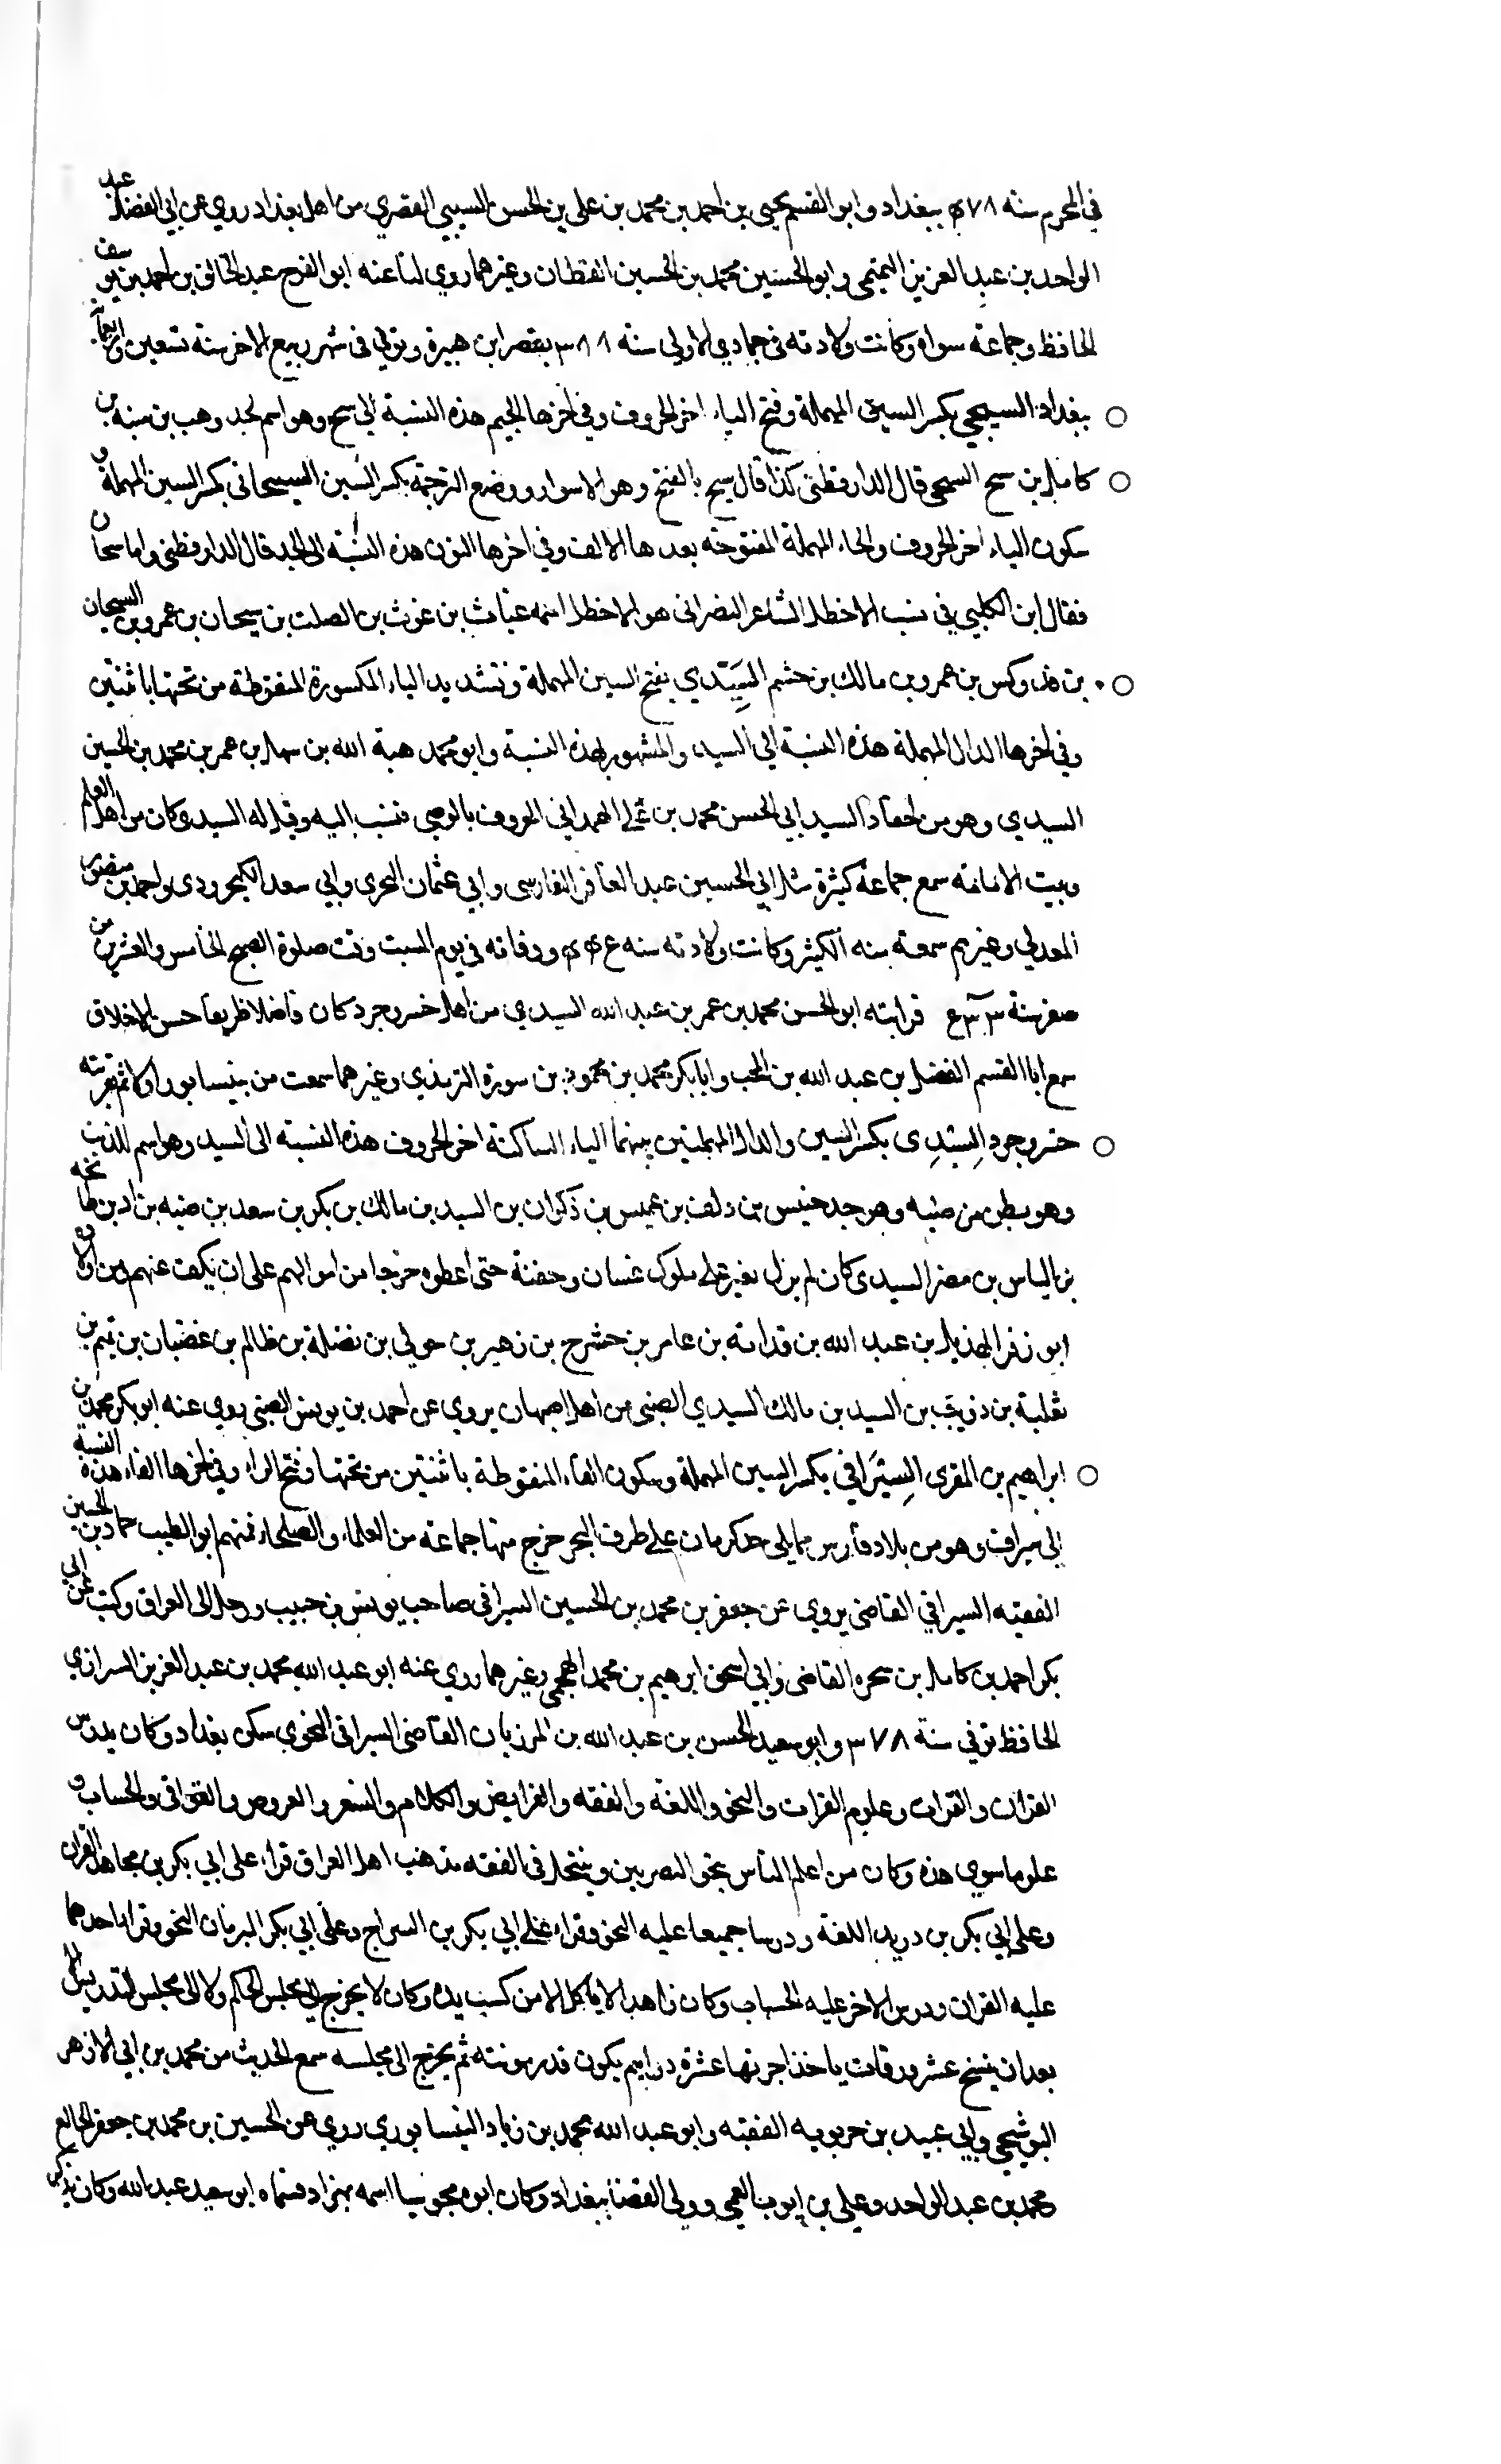 في المحرم سنه ٤٧٨ ببغداد وابو القسم يحيى بن احمد بن محمد بن علي بن الحسن السيبي القصري من اهل بغداد روي عن ابي الفضل عبد
الواحد بن عبد العزيز التميمي وابو الحسين محمد بن الحسين القطان وغيرهما روي لنا عنه ابو الفرح عبد الخالق بن احمد بن يوسف
الحافظ وجماعة سواه وكانت ولادته في جمادي الاولي سنة ٣٨٨ بقصر ابن هبيرة وتوفي في شهر ربيع الاخر سنه تسعين واربعماية
ببغداد السيجي بكسر السين المهملة وفتح الياء اخر الحروف وفي اخرها الجيم هذه النسبة الي سيج وهو اسم لجد وهب بن منبه بن
كامل بن سيج السيجي قال الدارقطني كذا قال سيج بالفتح وهو الاسوار ووضع الترجمة بكسر السين السيحاني بكسر السين المهملة و
سكون الياء اخر الحروف والحاء المهملة المفتوحه بعدها الالف وفي اخرها النون هذه النسبة الى الجد قال الدارقطني واما سيحان
فقال ابن الكلبي في نسب الاخطل الشاعر النصراني هو الاخطل اسمه غياث بن غوث بن الصلت بن سيحان بن عمرو بن السيحان
بن فدوكس بن عمرو بن مالك بن جشم السَيِّدي بفتح السين المهملة وتشديد الياء المكسورة المنقوطة من تحتها باثنتين
وفي اخرها الدال المهملة هذه النسبة الي السيد والمشهور بهذه النسبة وابو محمد هبة الله بن سهل بن عمر بن محمد بن الحسين
السيدي وهو من احفاد السيد ابي الحسن محمد بن علي الهمداني المعروف بالوصي فنسب اليه وقيل له السيدي كان من اهل العلم
وبيت الامامه سمع جماعة كثيرة مثل ابي الحسين عبد الغافر الفارسي وابي عثمان البحري وابي سعد الكنجرودي واحمد بن منصور
المعدلي وغيرهم سمعت منه الكثير وكانت ولادته سنه ٤٤٥ ووفاته في يوم السبت وقت صلوة الصبح الخامس والعشرين من
صفر سنة ٥٣٣ قرابته ابو الحسن محمد بن عمر بن عبد الله السيدي من اهل خسروجرد كان فاضلا ظريفا حسن الاخلاق
سمع ابا القسم الفضل بن عبد الله بن المحب وابا بكر محمد بن محمود بن سورة الترمذي وغيرهما سمعت من بنيسابور اولا ثم بقريته
خسروجرد السِيْدِى بكسر السين والدال المهملتين بينهما الياء الساكنة اخر الحروف هذه النسبة الى السيد وهو اسم للذئب
وهو بطن من ضبه وهو جد حنيس بن دلف بن عميس بن ذكوان بن السيد بن مالك بن بكر بن سعد بن ضبه بن اد بن طابخه
بن الياس بن مضر السيدي كان لم يزل يغير علي ملوك غسان وجفنة حتى اعطوه خرجا من اموالهم على ان يكف عنهم ومن اولاده
ابو زفر الهذيل بن عبد الله بن قدامه بن عامر بن حشرج بن زهير بن حولي بن نضلة بن ظالم بن غضبان بن تيم بن
ثعلبة بن ذويب بن السيد بن مالك السيدي الضبي من اهل اصبهان يروي عن احمد بن يونس الضبي روي عنه ابو بكر محمد بن
ابراهيم بن المقرى السِيْرَافي بكسر السين المهملة وسكون الياء المنقوطة باثنتين من تحتها وفتح الراء وفي اخرها الفاء هذه النسبة
الي سيراف وهو من بلاد فارس مما يلي حد كرمان علي طرف البحر خرج منها جماعة من العلماء والصلحاء فمنهم ابو الطيب حماد بن الحسين
الفقيه السيرافي القاضي يروي عن جعفر بن محمد بن الحسين السيرافي صاحب يونس بن حبيب ورحل الى العراق وكتب عن ابي
بكر احمد بن كامل بن شجره القاضي وابي اسحق ابرهيم بن محمد الهجيمي وغيرهما روي عنه ابو عبد الله محمد بن عبد العزيز الشيرازي
الحافظ توفي سنة ٣٧٨ وابو سعيد الحسن بن عبد الله بن المرزبان القاضي السيرافي النحوي سكن بغداد وكان يدرس
القران والقراات وعلوم القران والنحو واللغة والفقه والفرايض والكلام والشعر والعروض والقوافي والحساب و
علوما سوي هذه وكان من اعلم الناس بنحو البصريين وينتحل في الفقه مذهب اهل العراق قراء على ابي بكر بن مجاهد القران
وعلي ابي بكر بن دريد اللغة ودرسا جميعا عليه النحو وقراء علي ابي بكر بن السراج وعلي ابي بكر المبرمان النحو وقرا احدهما
عليه القران ودرس الاخر عليه الحساب وكان زاهدا لا ياكل الا من كسب يده وكان لا يخرج الي مجلس الحكم ولا الى مجلس التدريس الا
بعد ان ينسخ عشر ورقات ياخذ اجرتها عشرة دراهم يكون قدر مونته ثم يخرج الى مجلسه سمع الحديث من محمد بن ابي الازهر
البوشنجي وابي عبيد بن حربويه الفقيه وابو عبد الله محمد بن زياد النيسابوري روي عن الحسين بن محمد بن جعفر الخالع
محمد بن عبد الواحد وعلي بن ايوب القمي وولى القضا ببغداد وكان ابوه مجوسيا اسمه بهزاد فسماه ابو سعيد عبد الله وكان يذكر